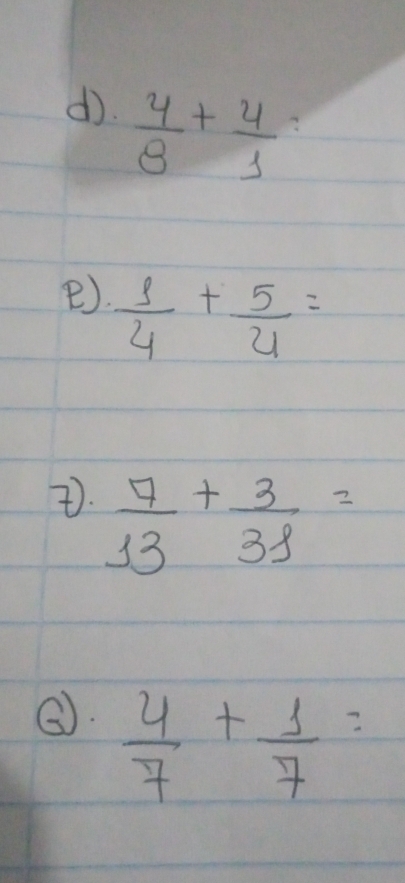 d). 4/8 + 4/1 =
e). 1/4 + 5/4 =
7). 7/13 + 3/31 =
Q). 4/7 + 1/7 =